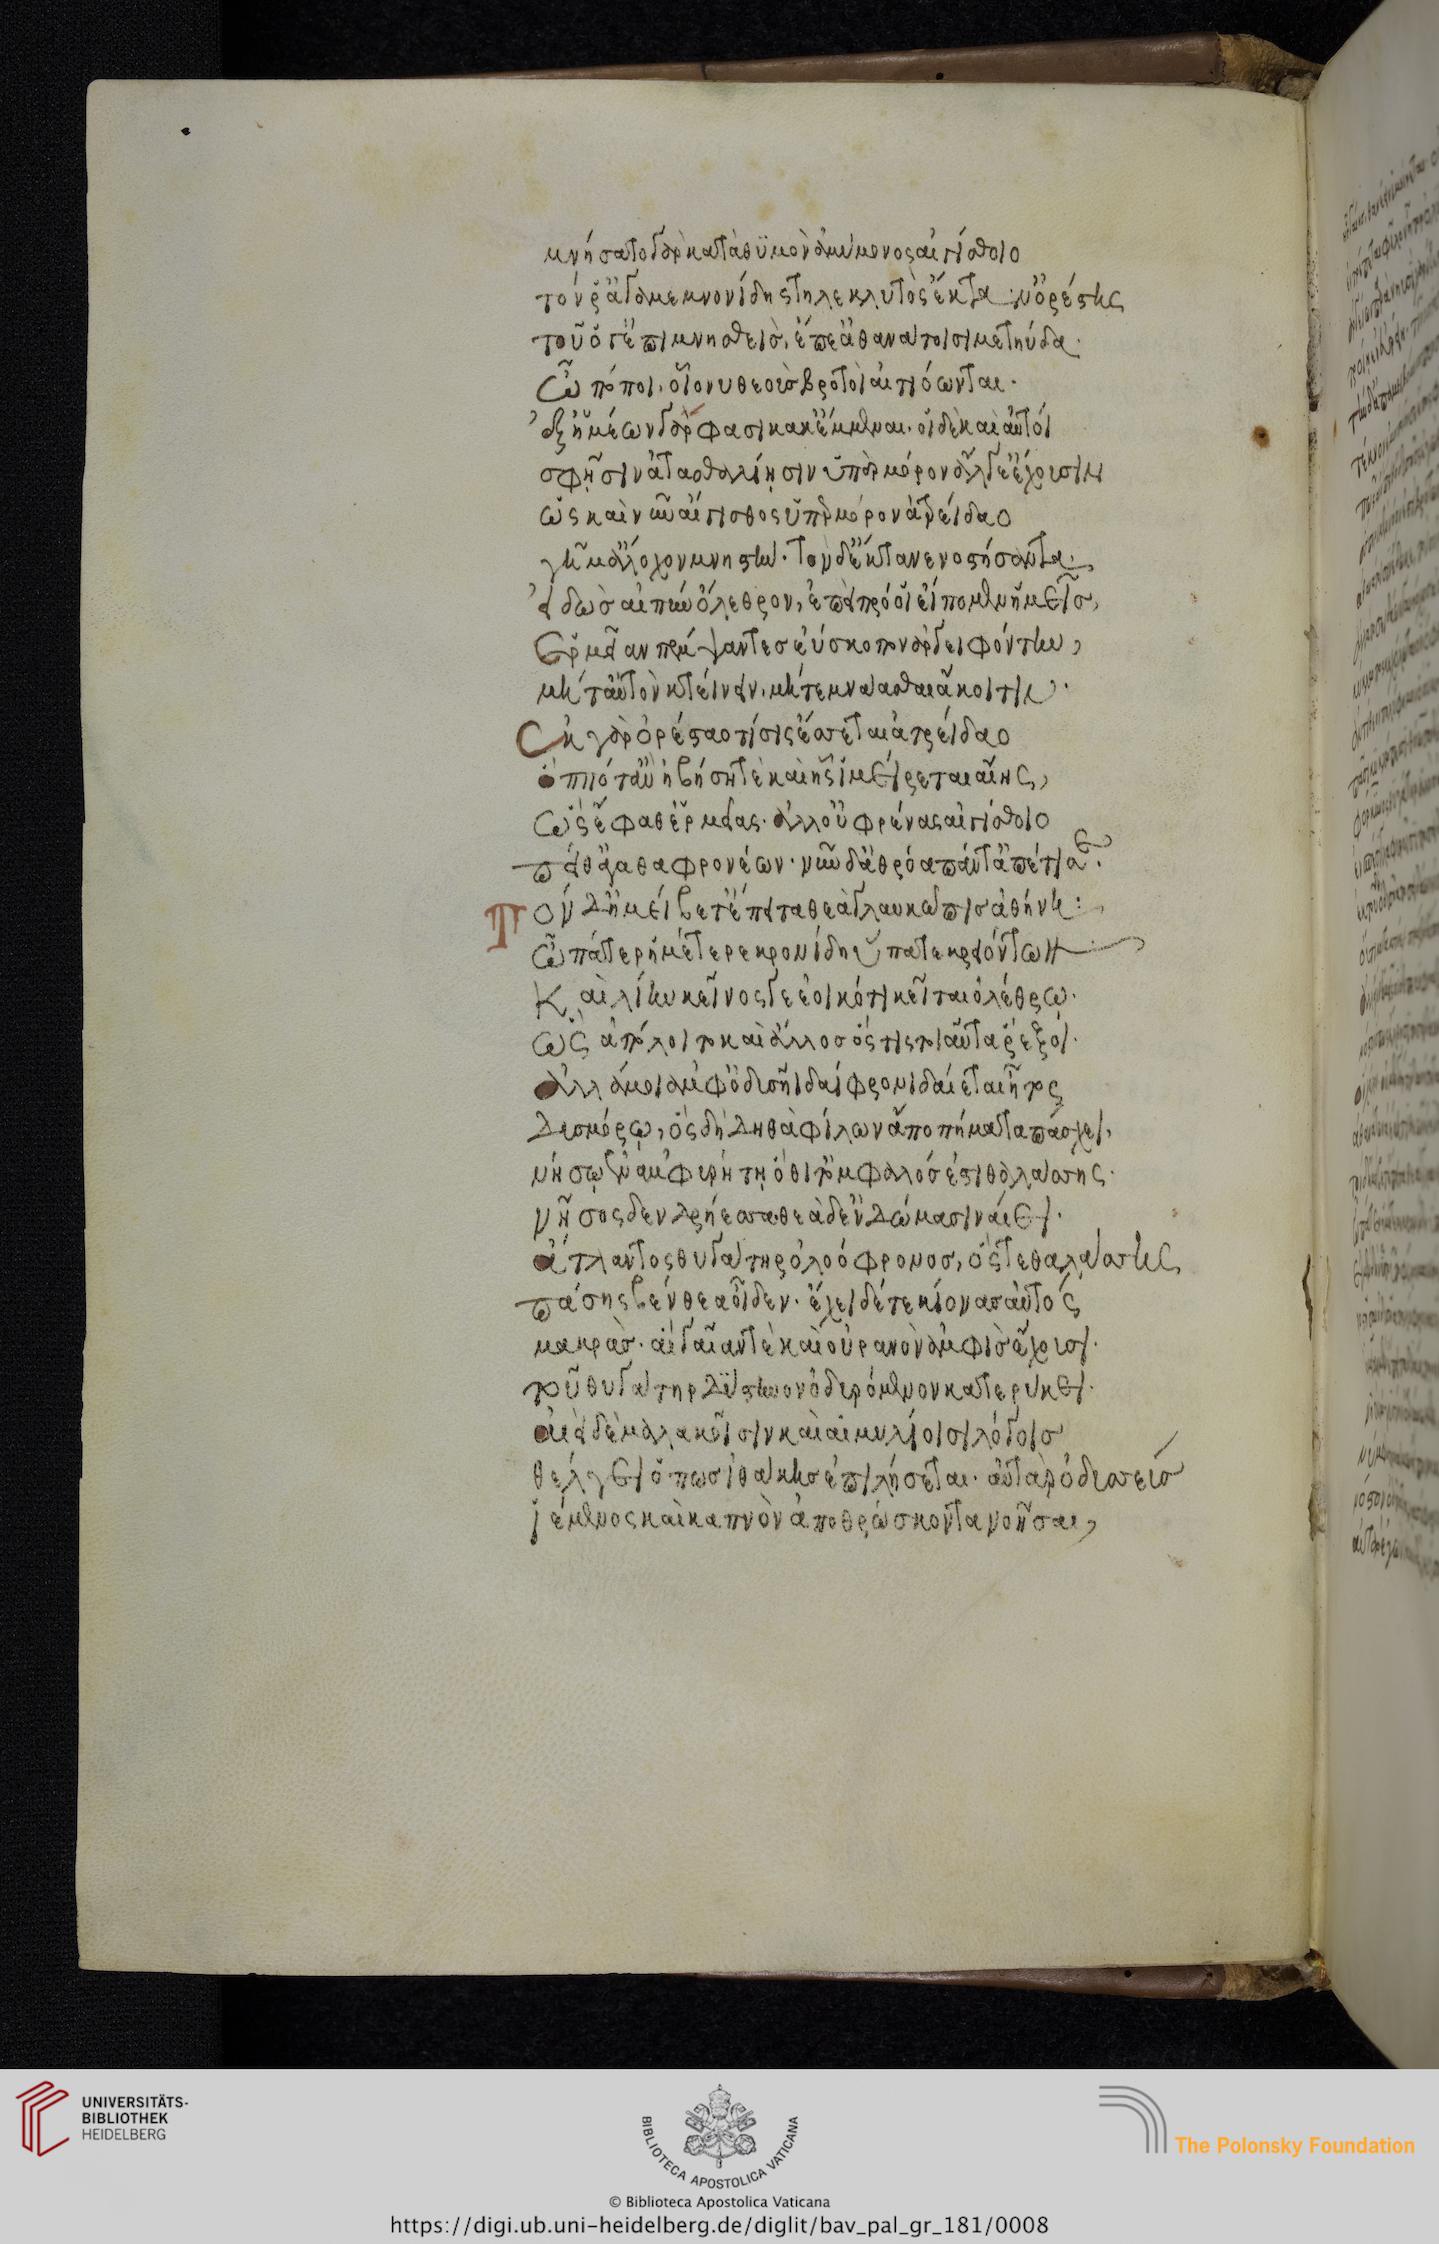 μνήσατο γὰρ κατὰ θϋμὸν ἀμύμονος αἰγίσθοιο
τόν ῥ' ἀγαμεμνονίδης τηλεκλυτὸς ἔκταν' ὀρέστης
τοῦ ὅγ' ἐπιμνησθεὶσ, ἔπε' ἀθανάτοισι μετηύδα·
ὦ πόποι, οἷον νυ θεοὺσ βροτοὶ αἰτιόωνται·
ἐξ ἡμέων γὰρ φασι κακ' ἔμμεναι· οἱ δὲ καὶ αὐτοὶ
σφῇσιν ἀτασθαλίῃσιν ὑπὲρ μόρον ἄλγε' ἔχουσιν
ὡς καὶ νῦν αἴγισθος ὑπὲρ μόρον ἀτρείδαο
γῆμ' ἄλοχον μνηστήν· τὸν δ' ἔκτανε νοστήσαντα,
εἰδὼσ αἰπὺν ὄλεθρον, ἐπεὶ πρό οἱ εἴπομεν ἡμεῖσ,
ἑρμείαν πέμψαντεσ ἐύσκοπον ἀργειφόντην,
μήτ' αὐτὸν κτείνειν, μήτε μνάασθαι ἄκοιτιν·
ἐκ γὰρ ὀρέσταο τίσις ἔσσεται ἀτρείδαο
ὁππότ' ἂν ἡβήσῃ τὲ καὶ ἧς ἱμείρεται αἴης,
ὣς ἔφαθ' ἑρμείας· ἀλλ' οὐ φρένας αἰγίσθοιο
πεῖθ' ἀγαθα φρονέων· νῦν δ' ἀθρόα πάντ' ἀπέτισε·
Τὸν δ' ἠμείβετ' ἔπειτα θεὰ γλαυκῶπισ ἀθήνη:
ὦ πάτερ ἡμέτερε κρονίδη ὕπατε κρειόντων
Καὶ λίην κεῖνος γε ἐοικότι κεῖται ὀλέθρῳ·
ὣς ἀπόλοιτο καὶ ἄλλοσ ὅς τις τοιαῦτα ῥέξοι·
ἀλλά μοι ἀμφ' ὀδυσῆι δαίφρονι δαίεται ἦτορ
δυσμόρῳ, ὃς δὴ δηθὰ φίλων ἄπο πήματα πάσχει,
νήσῳ ἐν ἀμφιρύτῃ ὅθι τ' ὀμφαλόσ ἐστι θαλάσσης·
νῆσος δενδρήεσσα θεὰ δ' ἐν δώμασι ναίει·
ἄτλαντος θυγάτηρ ὀλοόφρονοσ, ὅς τε θαλάσσης
πάσης βένθεα οἶδεν· ἔχει δέ τε κίονασ αὐτὸς
μακρὰσ· αἳ γαῖαν τὲ καὶ οὐρανὸν ἀμφὶσ ἔχουσι·
τοῦ θυγάτηρ δύστηνον ὀδυρόμενον κατερύκει·
αἰεὶ δὲ μαλακοῖσιν καὶ αἱμυλίοισι λόγοισ
θέλγει ὅπωσ ἰθάκησ ἐπιλήσεται· αὐτὰρ ὀδυσσεὺσ
ἱέμενος καὶ καπνὸν ἀποθρώσκοντα νοῆσαι,
UNIVERSITÄTS-
BIBLIOTHEK
HEIDELBERG
BIBLIOTECA APOSTOLICA VATICANA
© Biblioteca Apostolica Vaticana
The Polonsky Foundation
https://digi.ub.uni-heidelberg.de/diglit/bav_pal_gr_181/0008